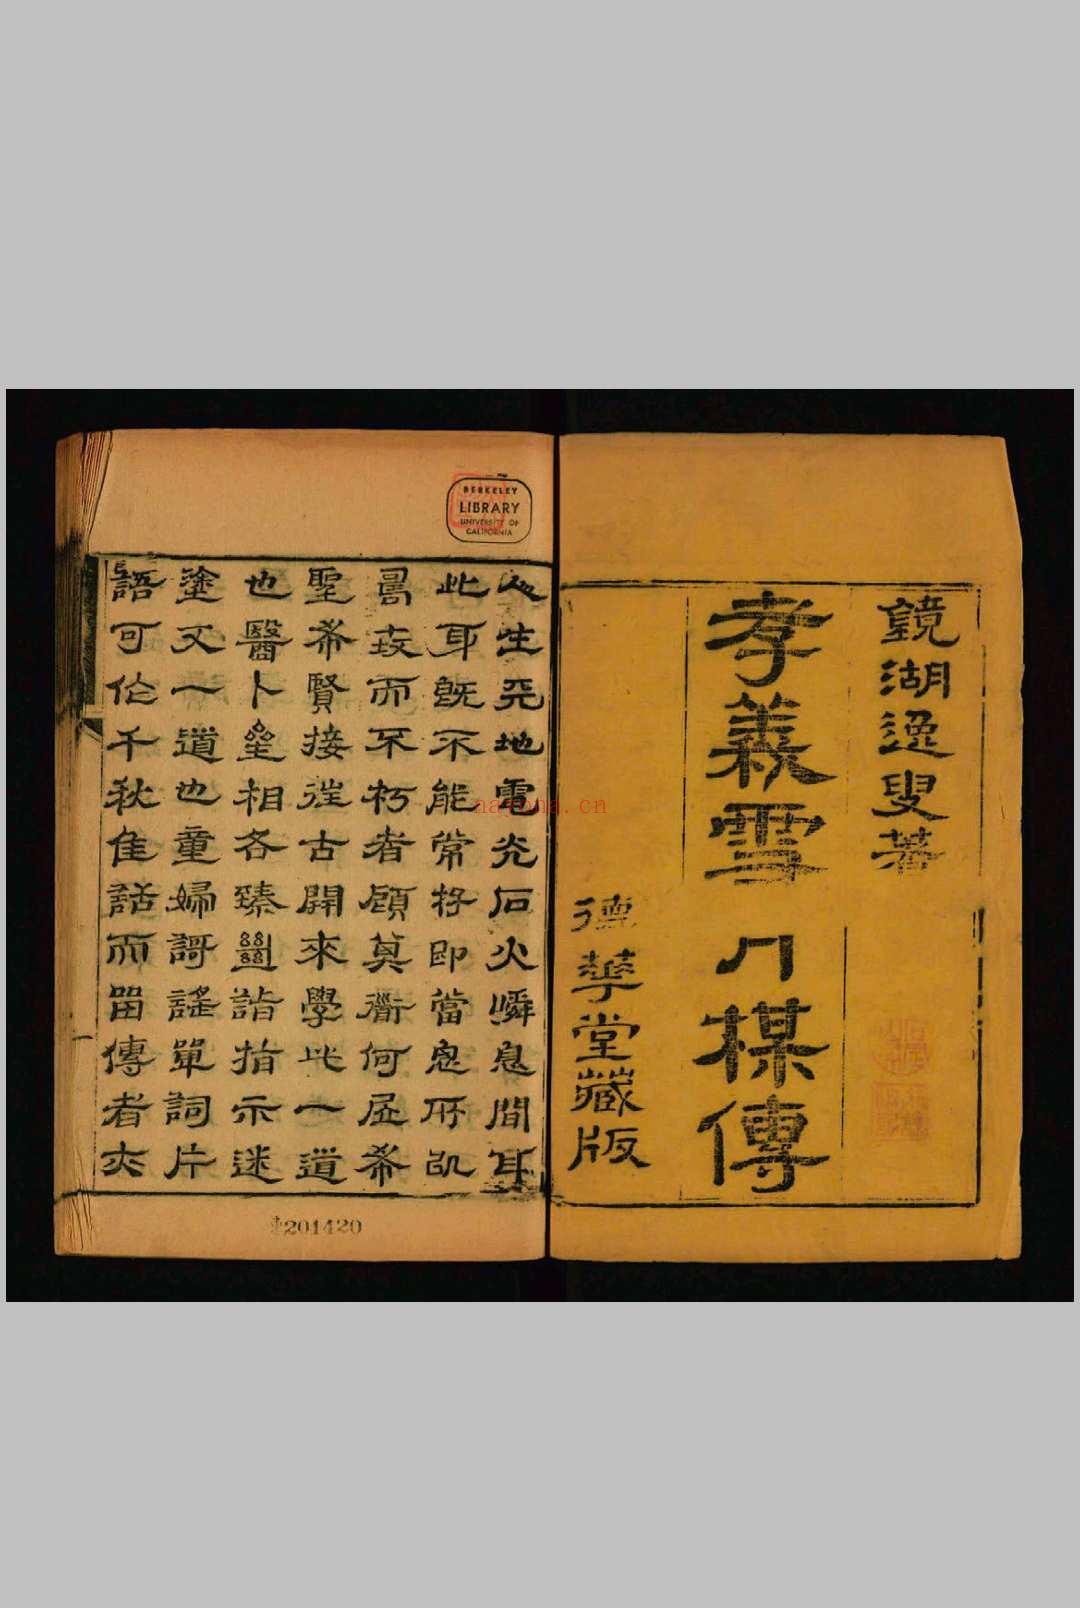 鏡湖逸叟著
孝義雪月楳傳
德華堂藏版
BERKELEY
LIBRARY
UNIVERSITY OF
CALIFORNIA
人生天地電光石火瞬息間耳
此身既不能常存即當思所以
而不朽者顧其衜何居希
聖希賢接往古開來學此一道
也醫卜星相各臻絕詣指示迷
塗又一道也童婦謌謠單詞片
語可作千秋佳話而留傳者亦
201420
nayona.cn